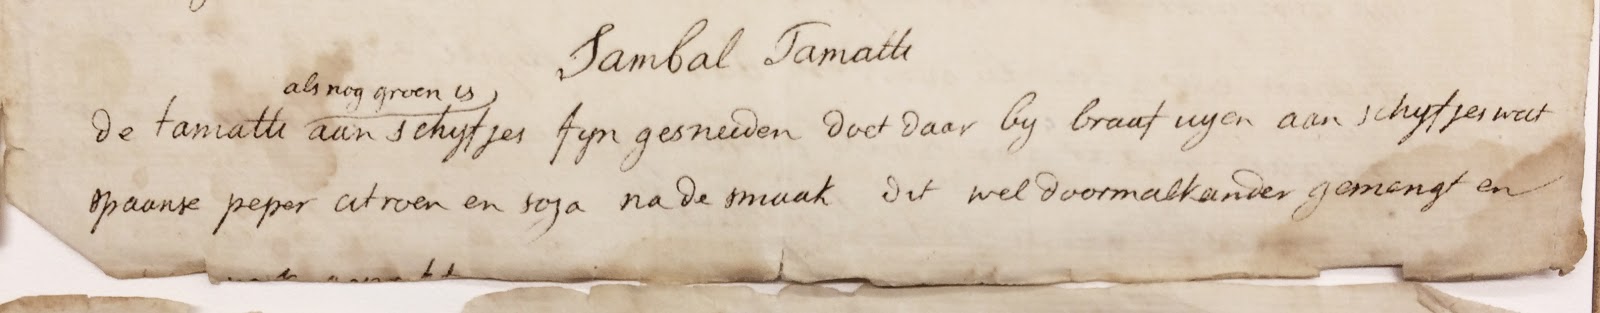 Sambal Tamatti
als nog groen is
de tamatti aan schyfjes fyn gesneiden doet daar by braaf uyen aan schyfjes wat
spaanse peper citroen en soya na de smaak dit wel doormalkander gemengt en